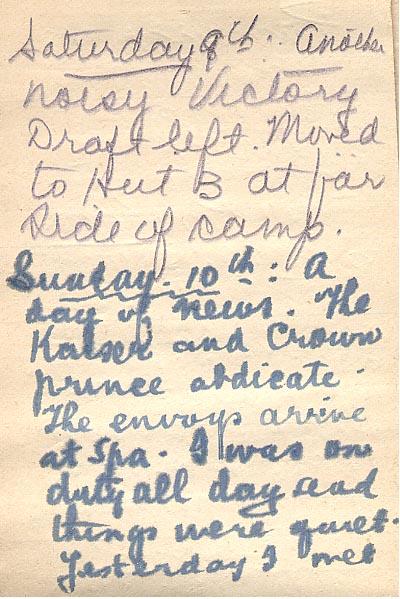 Saturday 9th. Another
noisy Victory
Draft left. Moved
to Hut B at far
side of camp.
Sunday. 10th: A
day of news. The
Kaiser and Crown
prince abdicate.
The envoys arrive
at Spa. I was on
duty all day and
things were quiet.
Yesterday I met